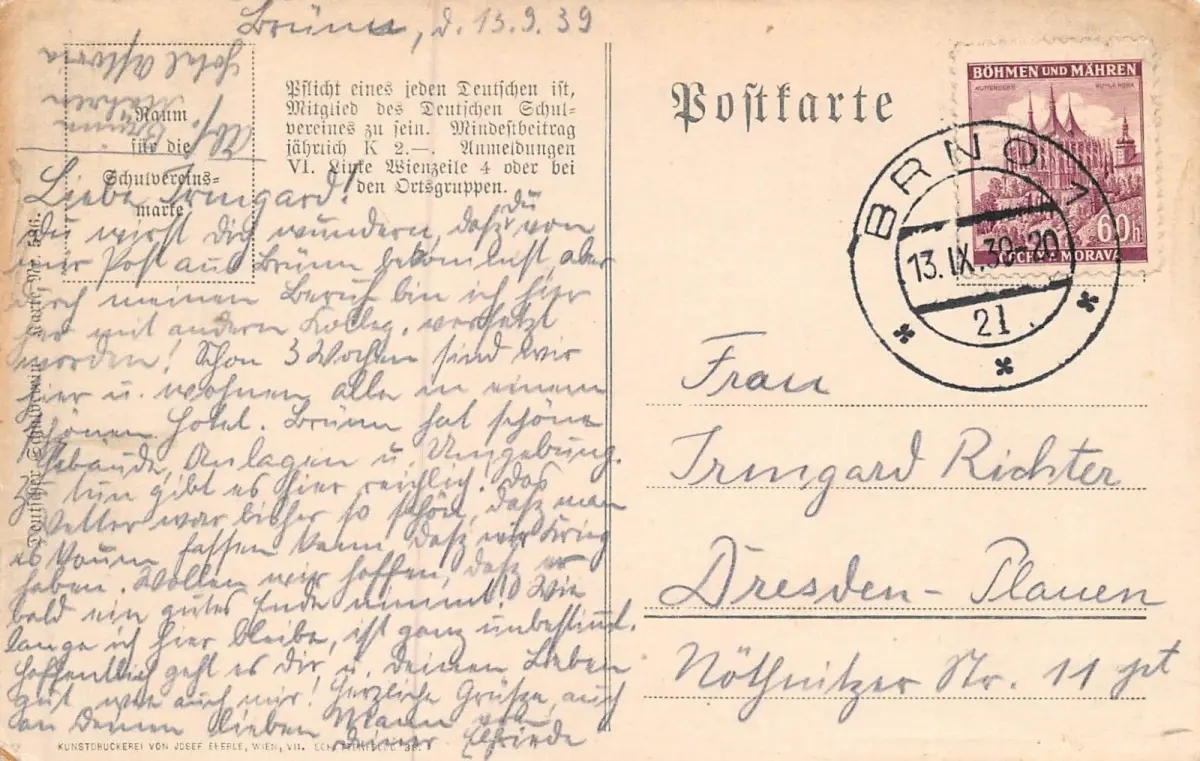 Brünn, d. 13.9.39
Abs.
Brünn
Mähren
Hotel Astoria
Raum
für die
Schulvereins-
marke
Pflicht eines jeden Deutschen ist,
Mitglied des Deutschen Schul-
vereines zu sein. Mindestbeitrag
jährlich K 2.—. Anmeldungen
VI. Linke Wienzeile 4 oder bei
den Ortsgruppen.
Liebe Irmgard!
Du wirst Dich wundern, daß du von
mir Post aus Brünn bekommst, aber
durch meinen Beruf bin ich hier
her mit andern Kolleg. versetzt
worden! Schon 3 Wochen sind wir
hier u. wohnen alle in einem
schönen Hotel. Brünn hat schöne
Gebäude, Anlagen u. Umgebung.
Zu tun gibt es hier reichlich. Das
Wetter war bisher so schön, daß man
es kaum fassen kann, daß wir Krieg
haben. Wollen wir hoffen, daß er
bald ein gutes Ende nimmt! Wie
lange ich hier bleibe, ist ganz unbestimmt.
Hoffentlich geht es dir u. deinen Lieben
gut wie auch mir! Herzliche Grüße, auch
an Deinen lieben Mann von
deiner Elfriede
Deutscher Schulverein Karte Nr.
KUNSTDRUCKEREI VON JOSEF EBERLE, WIEN, VII.
Postkarte
BÖHMEN UND MÄHREN
KUTTENBERG KUTNÁ HORA
60h
ČECHY A MORAVA
BRNO 1
13. IX. 39-20
21
Frau
Irmgard Richter
Dresden - Plauen
Nöthnitzer Str. 11 pt